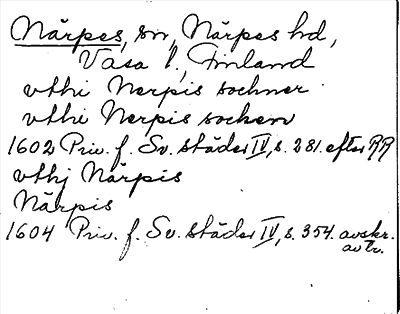 Närpes, sn, Närpes hd,
Vasa l., Finland
vthi Nerpis sochner
vthi Nerpis socken
1602 Priv. f. Sv. städer IV, s. 281. efter RR
vthj Närpis
Närpis
1604 Priv. f. Sv. städer IV, s. 354. avskr.
avtr.